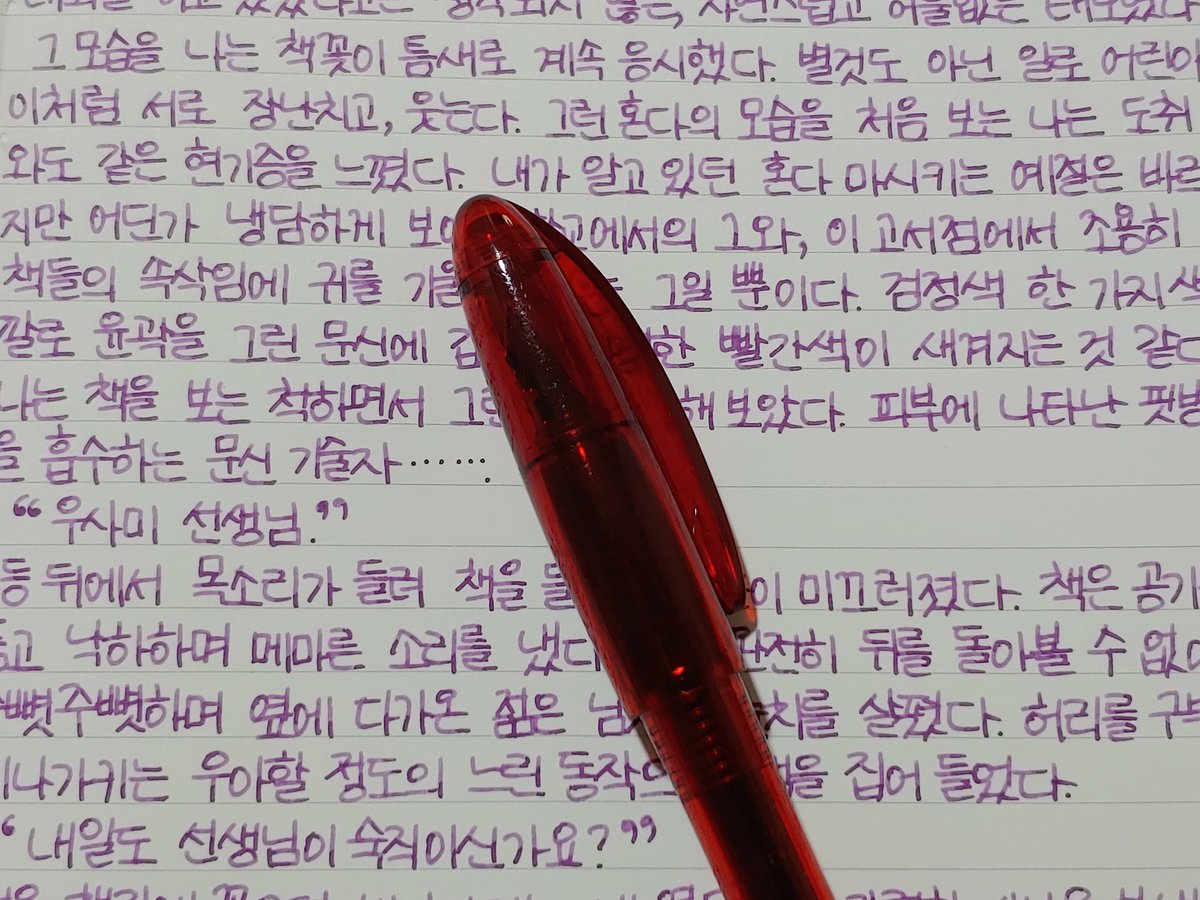 그 모습을 나는 책꽂이 틈새로 계속 응시했다. 별것도 아닌 일로 어린아
이처럼 서로 장난치고, 웃는다. 그런 혼다의 모습을 처음 보는 나는 도취
와도 같은 현기증을 느꼈다. 내가 알고 있던 혼다 마시키는 예절은 바르
지만 어딘가 냉담하게 보 고에서의 그와, 이 고서점에서 조용히
책들의 속삭임에 귀를 그일 뿐이다. 검정색 한 가지 색
깔로 윤곽을 그린 문신에 한 빨간색이 새겨지는 것 같다
나는 책을 보는 척하면서 해 보았다. 피부에 나타난 핏방
을 흡수하는 문신 기술자…….
“우사미 선생님.”
등 뒤에서 목소리가 들려 책을 이 미끄러졌다. 책은 공기
낙하하며 메마른 소리를 냈다 뒤를 돌아볼 수 없
뼛주뼛하며 옆에 다가온 젊은 치를 살폈다. 허리를 구
나가키는 우아할 정도의 느린 동작으 을 집어 들었다.
“내일도 선생님이 숙직이신가요?”